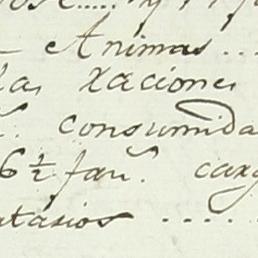 Animas ...
las raciones
consumida
6½ fan.s carg
atarios .....